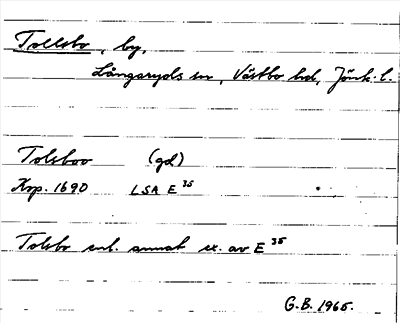 Tollsbo, by,
Långaryds sn, Västbo hd, Jönk. l.
Tolsboo (gd)
Krp. 1690 LSA E 35
Tolsbo enl. annat ex. av E 35
G.B. 1965.